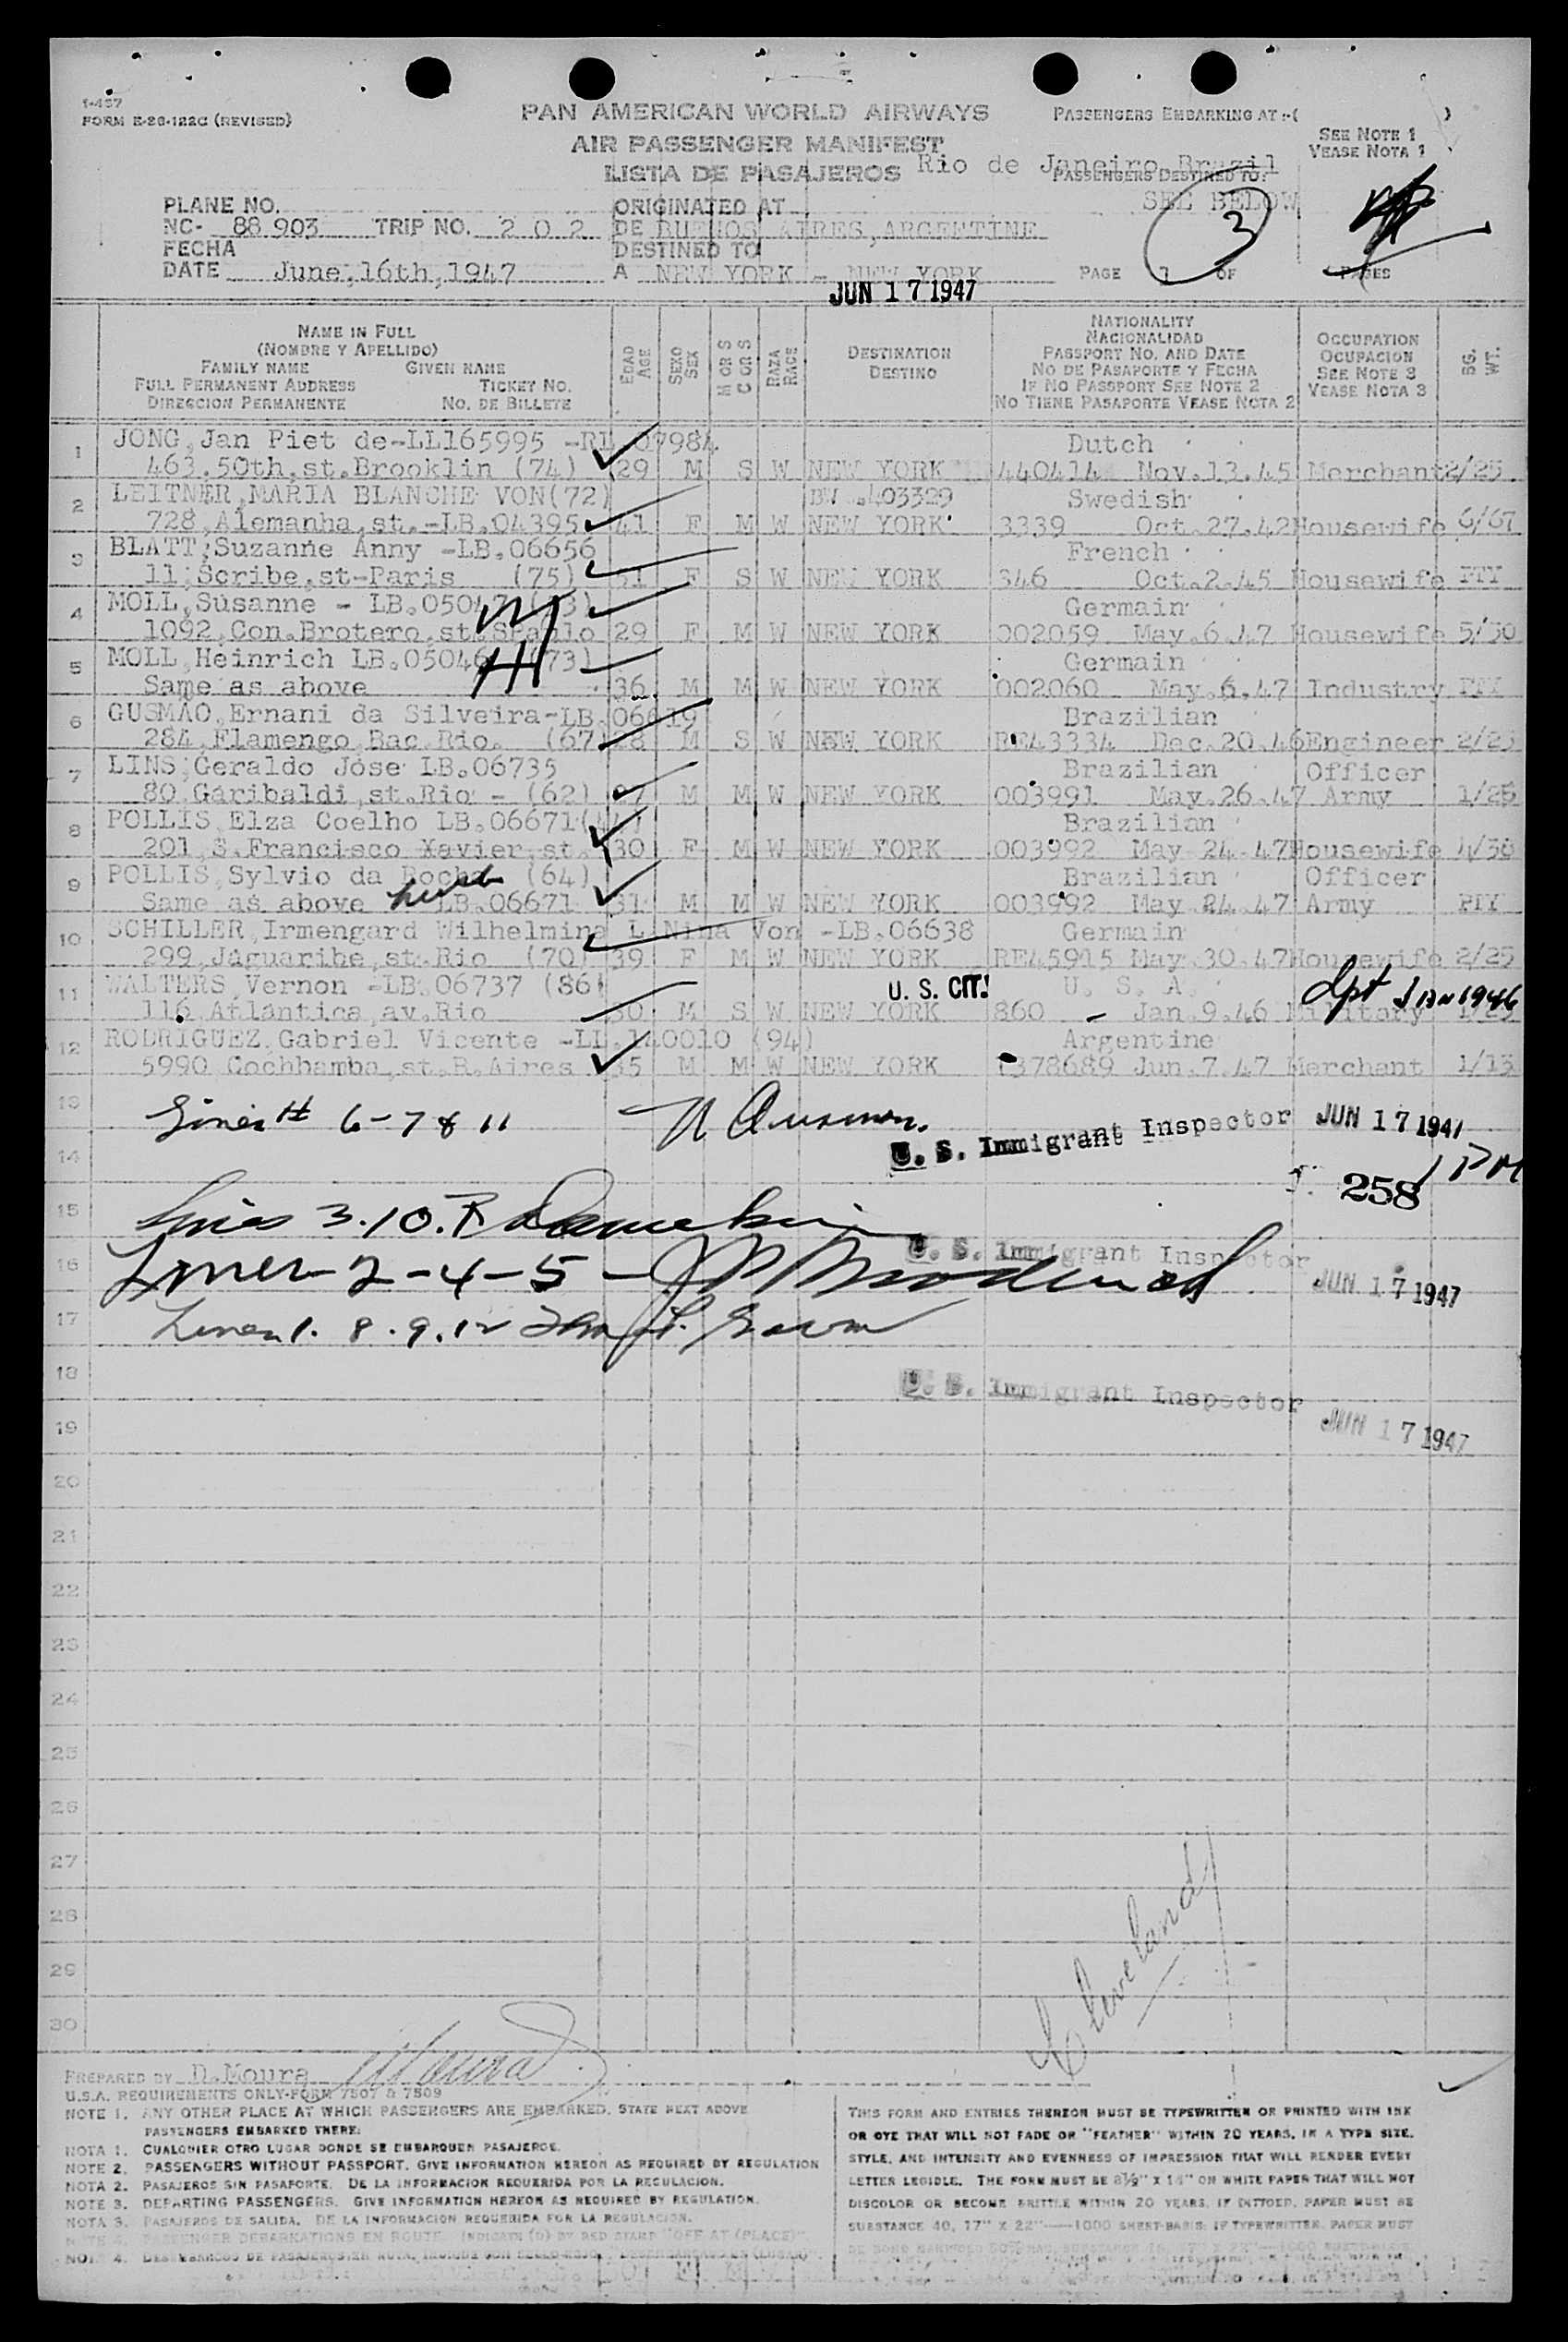 I-437
FORM E-28-122C (REVISED)
PAN AMERICAN WORLD AIRWAYS
AIR PASSENGER MANIFEST
LISTA DE PASAJEROS
PASSENGERS EMBARKING AT :-( )
SEE NOTE 1
VEASE NOTA 1
Rio de Janeiro Brazil
PASSENGERS DESTINED TO:
SEE BELOW
PLANE NO.
NC- 88 903 TRIP NO. 2 0 2
FECHA
DATE June,16th,1947
ORIGINATED AT
DE BUENOS AIRES,ARGENTINE
DESTINED TO
A NEW YORK - NEW YORK
PAGE 1 OF PAGES
3
JUN 17 1947
NAME IN FULL
(NOMBRE Y APELLIDO)
FAMILY NAME GIVEN NAME
FULL PERMANENT ADDRESS TICKET NO.
DIRECCION PERMANENTE NO. DE BILLETE
EDAD AGE
SEXO SEX
M OR S C OR S
RAZA RACE
DESTINATION
DESTINO
NATIONALITY
NACIONALIDAD
PASSPORT NO. AND DATE
NO DE PASAPORTE Y FECHA
IF NO PASSPORT SEE NOTE 2
NO TIENE PASAPORTE VEASE NOTA 2
OCCUPATION
OCUPACION
SEE NOTE 3
VEASE NOTA 3
BG. WT.
1 JONG,Jan Piet de-LL165995 -RL.07984 Dutch
463.50th,st.Brooklin (74) 29 M S W NEW YORK 440414 Nov.13.45 Merchant 2/25
2 LEITNER,MARIA BLANCHE VON(72) BW.403329 Swedish
728,Alemanha,st.-LB.04395 41 F M W NEW YORK 3339 Oct.27.42 Housewife 6/67
3 BLATT,Suzanne Anny -LB.06656 French
11,Scribe,st-Paris (75) 51 F S W NEW YORK 346 Oct.2.45 Housewife FTY
4 MOLL,Susanne - LB.05047 Germain
1092,Con.Brotero,st.SPaulo 29 F M W NEW YORK 002059 May.6.47 Housewife 5/50
5 MOLL,Heinrich LB.05046 (73) Germain
Same as above 36 M M W NEW YORK 002060 May.6.47 Industry FTY
6 GUSMAO,Ernani da Silveira-LB.06619 Brazilian
284,Flamengo,Bac.Rio. (67) 28 M S W NEW YORK RE43334 Dec.20.46 Engineer 2/25
7 LINS,Geraldo Jose LB.06735 Brazilian Officer
80 Garibaldi,st.Rio - (62) M M W NEW YORK 003991 May.26.47 Army 1/25
8 POLLIS,Elza Coelho LB.06671 Brazilian
201,S.Francisco Xavier,st. 30 F M W NEW YORK 003992 May 24.47 Housewife 4/50
9 POLLIS,Sylvio da Rocha (64) Brazilian Officer
Same as above LB.06671 31 M M W NEW YORK 003992 May 24.47 Army FTY
10 SCHILLER,Irmengard Wilhelmina L Nina Von -LB.06638 Germain
299,Jaguaribe,st.Rio (70) 39 F M W NEW YORK RE45915 May.30.47 Housewife 2/25
11 WALTERS,Vernon -LB.06737 (86) U. S. CIT. U. S. A.
116,Atlantica,av.Rio 30 M S W NEW YORK 860 - Jan.9.46 Military
Dpt JAN 1946
12 RODRIGUEZ,Gabriel Vicente -LL.140010 (94) Argentine
5990 Cochbamba,st.B.Aires 35 M M W NEW YORK 1378689 Jun.7.47 Merchant 1/15
13
Lines 6-7 & 11
U. S. Immigrant Inspector JUN 17 1947
14
1 PM
258
15
Lines 3.10.
16
U. S. Immigrant Inspector
Lines 2-4-5-
JUN 17 1947
17
Lines 1. 8. 9. 12
18
U. S. Immigrant Inspector
19
JUN 17 1947
20
21
22
23
24
25
26
27
28
29
30
Cleveland
PREPARED BY D.Moura
U.S.A. REQUIREMENTS ONLY-FORM 7507 & 7509
NOTE 1. ANY OTHER PLACE AT WHICH PASSENGERS ARE EMBARKED. STATE NEXT ABOVE
PASSENGERS EMBARKED THERE.
NOTA 1. CUALQUIER OTRO LUGAR DONDE SE EMBARQUEN PASAJEROS.
NOTE 2. PASSENGERS WITHOUT PASSPORT. GIVE INFORMATION HEREON AS REQUIRED BY REGULATION
NOTA 2. PASAJEROS SIN PASAPORTE. DE LA INFORMACION REQUERIDA POR LA REGULACION.
NOTE 3. DEPARTING PASSENGERS. GIVE INFORMATION HEREON AS REQUIRED BY REGULATION.
NOTA 3. PASAJEROS DE SALIDA. DE LA INFORMACION REQUERIDA POR LA REGULACION.
NOTE 4. PASSENGER DEBARKATIONS EN ROUTE. INDICATE (D) BY RED STAMP "OFF AT (PLACE)".
NOTA 4.
THIS FORM AND ENTRIES THEREON MUST BE TYPEWRITTEN OR PRINTED WITH INK
OR DYE THAT WILL NOT FADE OR "FEATHER" WITHIN 20 YEARS, IN A TYPE SIZE,
STYLE, AND INTENSITY AND EVENNESS OF IMPRESSION THAT WILL RENDER EVERY
LETTER LEGIBLE. THE FORM MUST BE 8½" X 14" ON WHITE PAPER THAT WILL NOT
DISCOLOR OR BECOME BRITTLE WITHIN 20 YEARS. IF DITTOED, PAPER MUST BE
SUBSTANCE 40, 17" X 22"—1000 SHEET-BASIS; IF TYPEWRITTEN, PAPER MUST